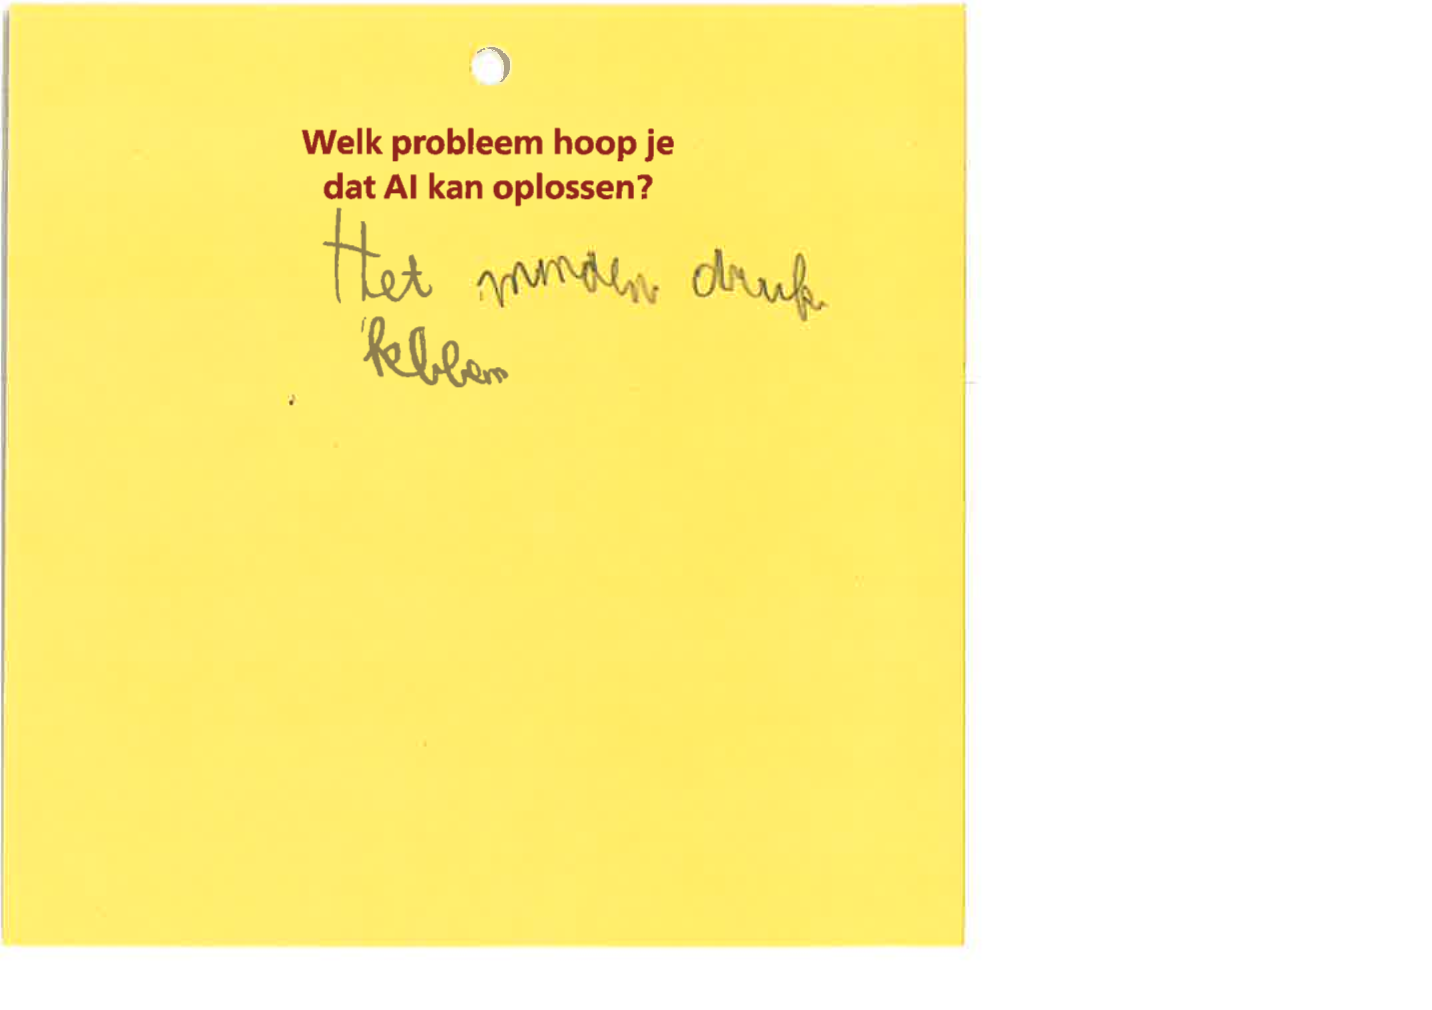 Welk probleem hoop je
dat AI kan oplossen?
Het minden druk